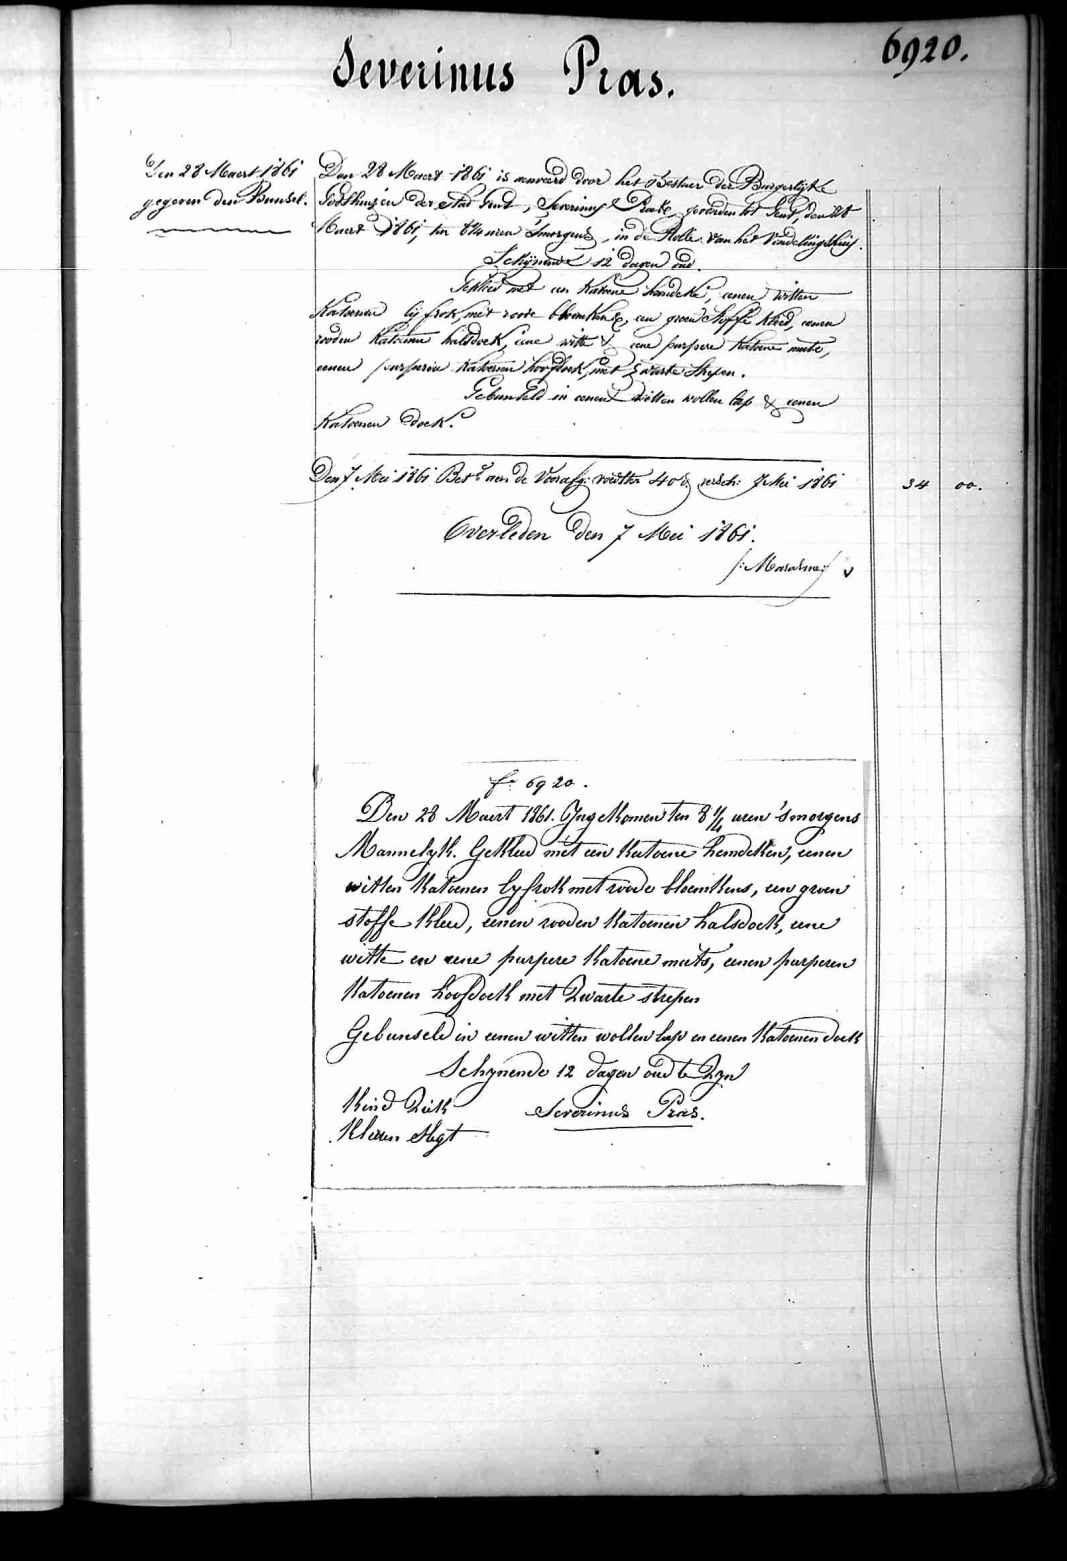 6920.
Severinus Pras.
Den 28 Maert 1861
gegeven den Bunsel.
Den 28 Maert 1861 is aenveerd door het Bestier der Burgerlijke
Godshuizen der Stad Gend, Severinus gevonden tot Gent, den 28
Maert 1861, ten uren 'smorgens, in de Rolle van het Vindelinghuis.
Schijnende 12 dagen oud.
Gekleed met een Katoene hemdeke, eenen witten
Katoenen lijfrok, met roode bloemkens, een groen stoffe kleed, eenen
rooden Katoenen halsdoek, eene witte & eene purpere Katoene muts,
eenen purperen Katoenen hoofdoek, met zwarte strepen.
Gebunseld in eenen witten wollen lap & eenen
Katoenen doek.
Den 7 Mei 1861 Bet. aen de voedster 40 d. versch. 7 Mei 1861 34 00.
Overleden den 7 Mei 1861.
f° 6920.
Den 28 Maert 1861. Ingekomen ten 8 1/4 uren 'smorgens
Mannelyk. Gekleed met een Katoene hemdeken, eenen
witten Katoenen lyfrok met roode bloemkens, een groen
stoffe kleed, eenen rooden Katoenen halsdoek, eene
witte en eene purpere Katoene muts, eenen purperen
Katoenen hoofdoek met zwarte strepen
Gebunseld in eenen witten wollen lap en eenen Katoenen doek
Schynende 12 dagen oud te zyn
Kind Ziek Severinus Pras.
Kleeren slegt